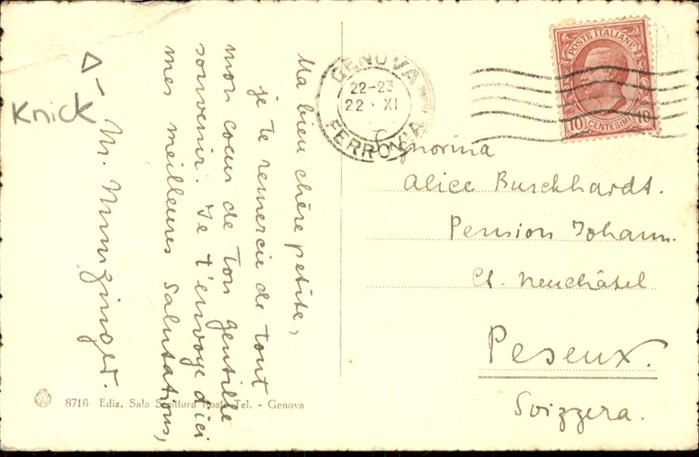 Ma bien chère petite,
je te remercie de tout
mon coeur de ton gentille
souvenir. Je t'envoye d'ici
mes meilleures salutations,
M. Munzinger.
Knick
GENOVA
22-23
22 · XI
FERROVIA
POSTE ITALIANE
10 CENTESIMI 10
Signorina
Alice Burckhardt.
Pension Johann.
Ct. Neuchâtel
Peseux.
Svizzera.
8716 Ediz. Sala Scrittura Posta Tel. - Genova